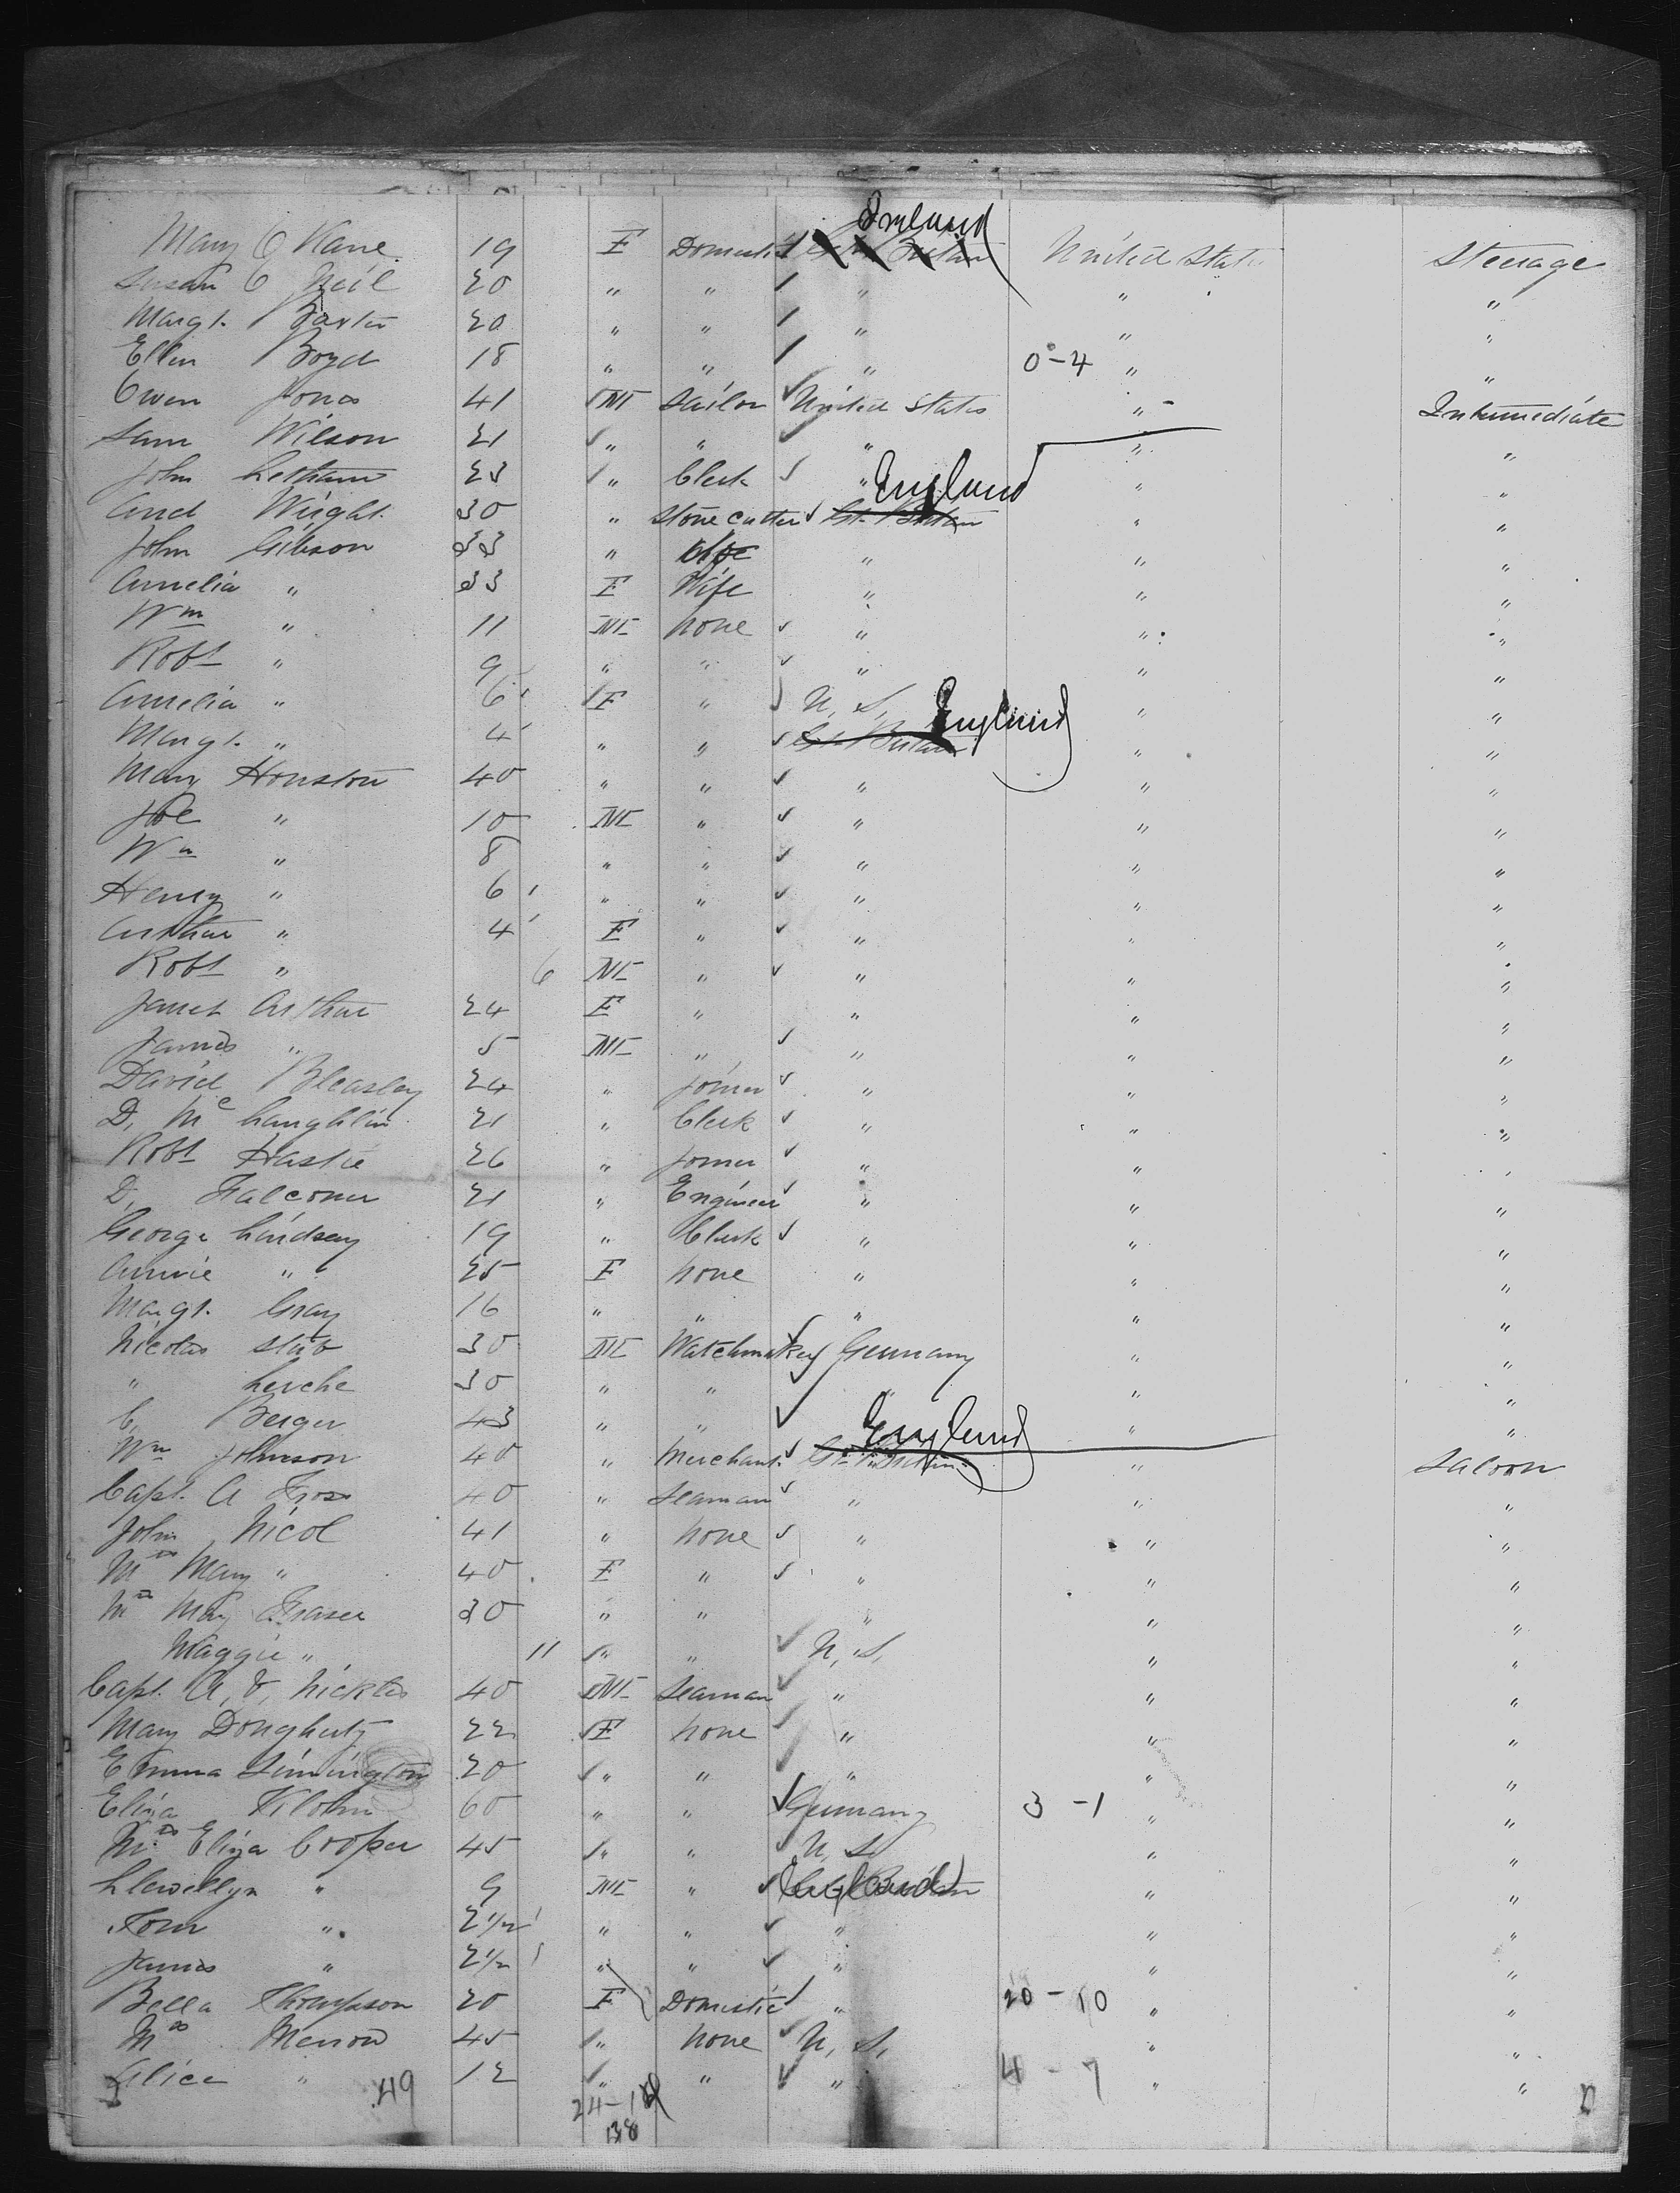 Ireland
Mary O Kane. 19 F Domestic Gt. Britain United States Steerage
Susan O Neil 20 " " " " "
Margt. Baxter 20 " " " " "
Ellen Boyd 18 " " " 0-4 " "
Owen Jones 41 M Sailor United States " Intermediate
Sam Wilson 21 " " " " "
John Letham 23 " Clerk " " "
England
And Wright 30 " Stone cutter Gt. Britain " "
John Gibson 33 " " " "
Amelia " 33 F Wife " " "
Wm " 11 M None " " "
Robt " 9 " " " " "
Amelia " 6 F " U. S. " "
England
Margt. " 4 " " Gt. Britain " "
Mary Houston 40 " " " " "
Joe " 10 M " " " "
Wm " 8 " " " " "
Henry " 6 " " " " "
Arthur " 4 F " " " "
Robt " 6 M " " " "
Janet Arthur 24 F " " " "
James " 5 M " " " "
David Bleasley 24 " Joiner " " "
D. Mc Laughlin 21 " Clerk " " "
Robt Hastie 26 " Joiner " " "
D. Falconer 21 " Engineer " " "
George Lindsay 19 " Clerk " " "
Annie " 25 F None " " "
Margt. Gray 16 " " " " "
Nicolas Stub 30 M Watchmaker Germany " "
" Lerche 30 " " " " "
C. Berger 43 " " " "
England
Wm Johnson 40 " Merchant Gt. Britain " Saloon
Capt. A Fross 40 " Seaman " " "
John Nicol 41 " None " " "
Mrs Mary " 40 F " " " "
Mrs May Fraser 30 " " " " "
Maggie " 11 " " U. S. " "
Capt. A. V. Nickles 40 M Seaman " " "
Mary Dougherty 22 F None " " "
Emma Simington 20 " " " " "
Eliza 60 " " Germany 3 - 1 " "
Mrs Eliza Cooper 45 " " U. S. " "
Llewellyn " 9 M " England " "
Tom " 2 1/2 " " " " "
James " 2 1/2 " " " " "
Bella Thompson 20 F Domestic " 20 - 10 " "
Mrs 45 " None U. S. " "
Alice " 12 " " " 4 - 7 " "
49
138